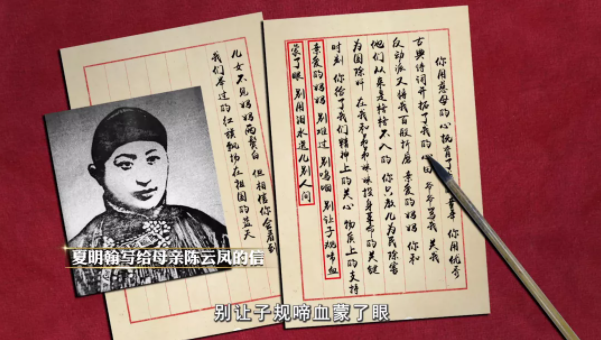 你用慈母的心抚育了 你用优秀
古典诗词开拓了我的心田 爷爷骂我 关我
反动派又将我百般折磨 亲爱的妈妈 你和
他们从来是格格不入的 你只教儿为民除害
为国除奸 在我和弟弟妹妹投身革命的关键
时刻 你给了我们精神上的关心 物质上的支持
亲爱的妈妈 别难过 别呜咽 别让子规啼血
蒙了眼 别用泪水送儿别人间
儿女不见妈妈两鬓白 但相信你会看到
我们举过的红旗飘扬在祖国的蓝天
夏明翰写给母亲陈云凤的信
别让子规啼血蒙了眼